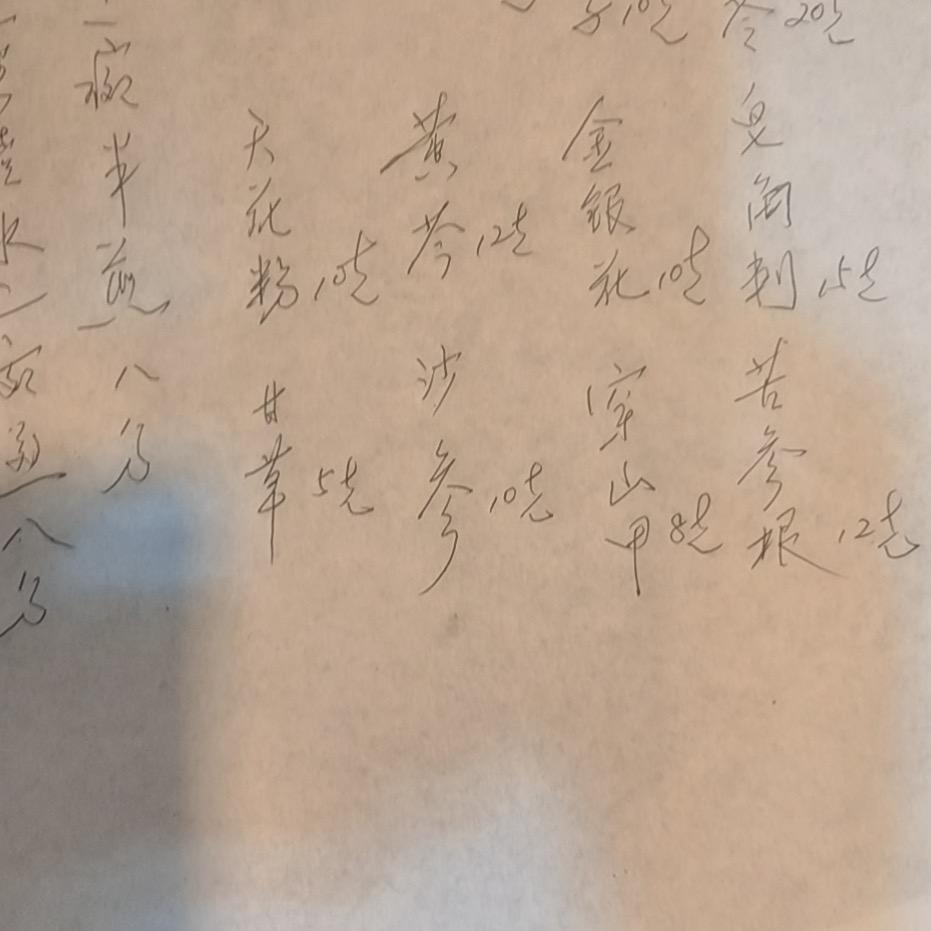 苓20克
皂角刺15克
苦参根12克
子10克
金银花10克
穿山甲8克
黄芩12克
沙参10克
天花粉10克
甘草5克
碗半煎八分
水二碗
八分